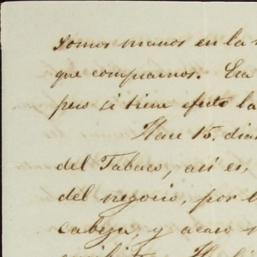 somos manos en la
que compramos. Era
pero si tiene efecto la
Hace 15. dias
del Tabaco, asi es,
del negocio, por
cabeza, y acaso